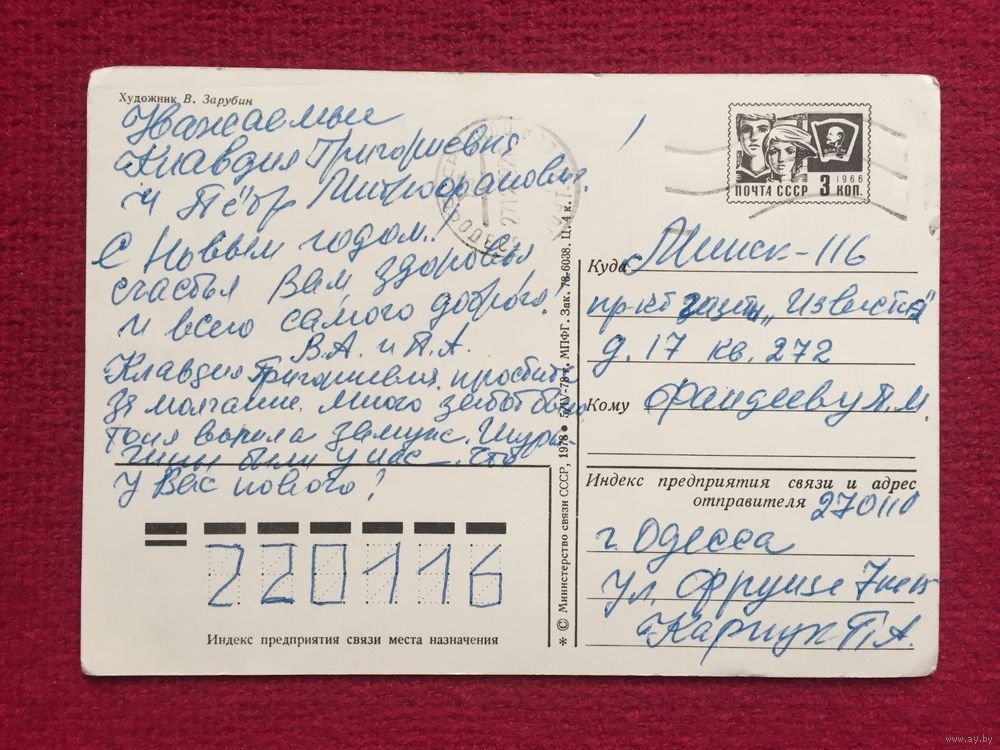 Художник В. Зарубин
Уважаемые
Клавдия Григориевна
и Пётр Митрофанович!
С Новым годом!
счастья Вам здоровья
и всего самого доброго!
В.А. и П.А.
Клавдия Григориевна. простите
за молчание. много забот было
Тоня вышла замуж.
были у нас. Что
у Вас нового?
220116
Индекс предприятия связи места назначения
* © Министерство связи СССР, 1978 • МПФГ. Зак. 78-6038. Ц. 4 к.
1966
ВЛКСМ
ПОЧТА СССР 3 КОП.
Куда Минск-116
пр-кт газеты „Известия"
д. 17 кв. 272
Кому Фандееву П.М.
Индекс предприятия связи и адрес
отправителя 270110
г. Одесса
ул. Фрунзе
П.А.
www.ay.by